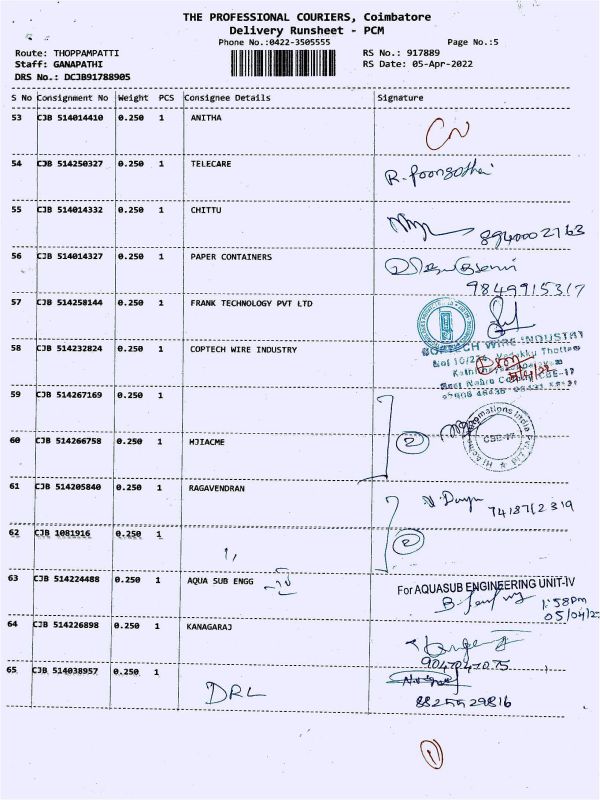 THE PROFESSIONAL COURIERS, Coimbatore
Delivery Runsheet - PCM
Phone No.:0422-3505555 Page No.:5
Route: THOPPAMPATTI RS No.: 917889
Staff: GANAPATHI RS Date: 05-Apr-2022
DRS No.: DCJB91788905
S No Consignment No Weight PCS Consignee Details Signature
53 CJB 514014410 0.250 1 ANITHA
54 CJB 514250327 0.250 1 TELECARE
R. Poongothai
55 CJB 514014332 0.250 1 CHITTU
8940002763
56 CJB 514014327 0.250 1 PAPER CONTAINERS
9849915317
57 CJB 514258144 0.250 1 FRANK TECHNOLOGY PVT LTD
58 CJB 514232824 0.250 1 COPTECH WIRE INDUSTRY
COPTECH WIRE INDUSTRY
59 CJB 514267169 0.250 1
60 CJB 514266758 0.250 1 HJIACME
2
CBE-17
61 CJB 514205840 0.250 1 RAGAVENDRAN
7418712319
62 CJB 1081916 0.250 1
2
63 CJB 514224488 0.250 1 AQUA SUB ENGG
For AQUASUB ENGINEERING UNIT-IV
1:58pm
05/04/22
64 CJB 514226898 0.250 1 KANAGARAJ
9047047075
65 CJB 514038957 0.250 1
DRL
8825929816
1